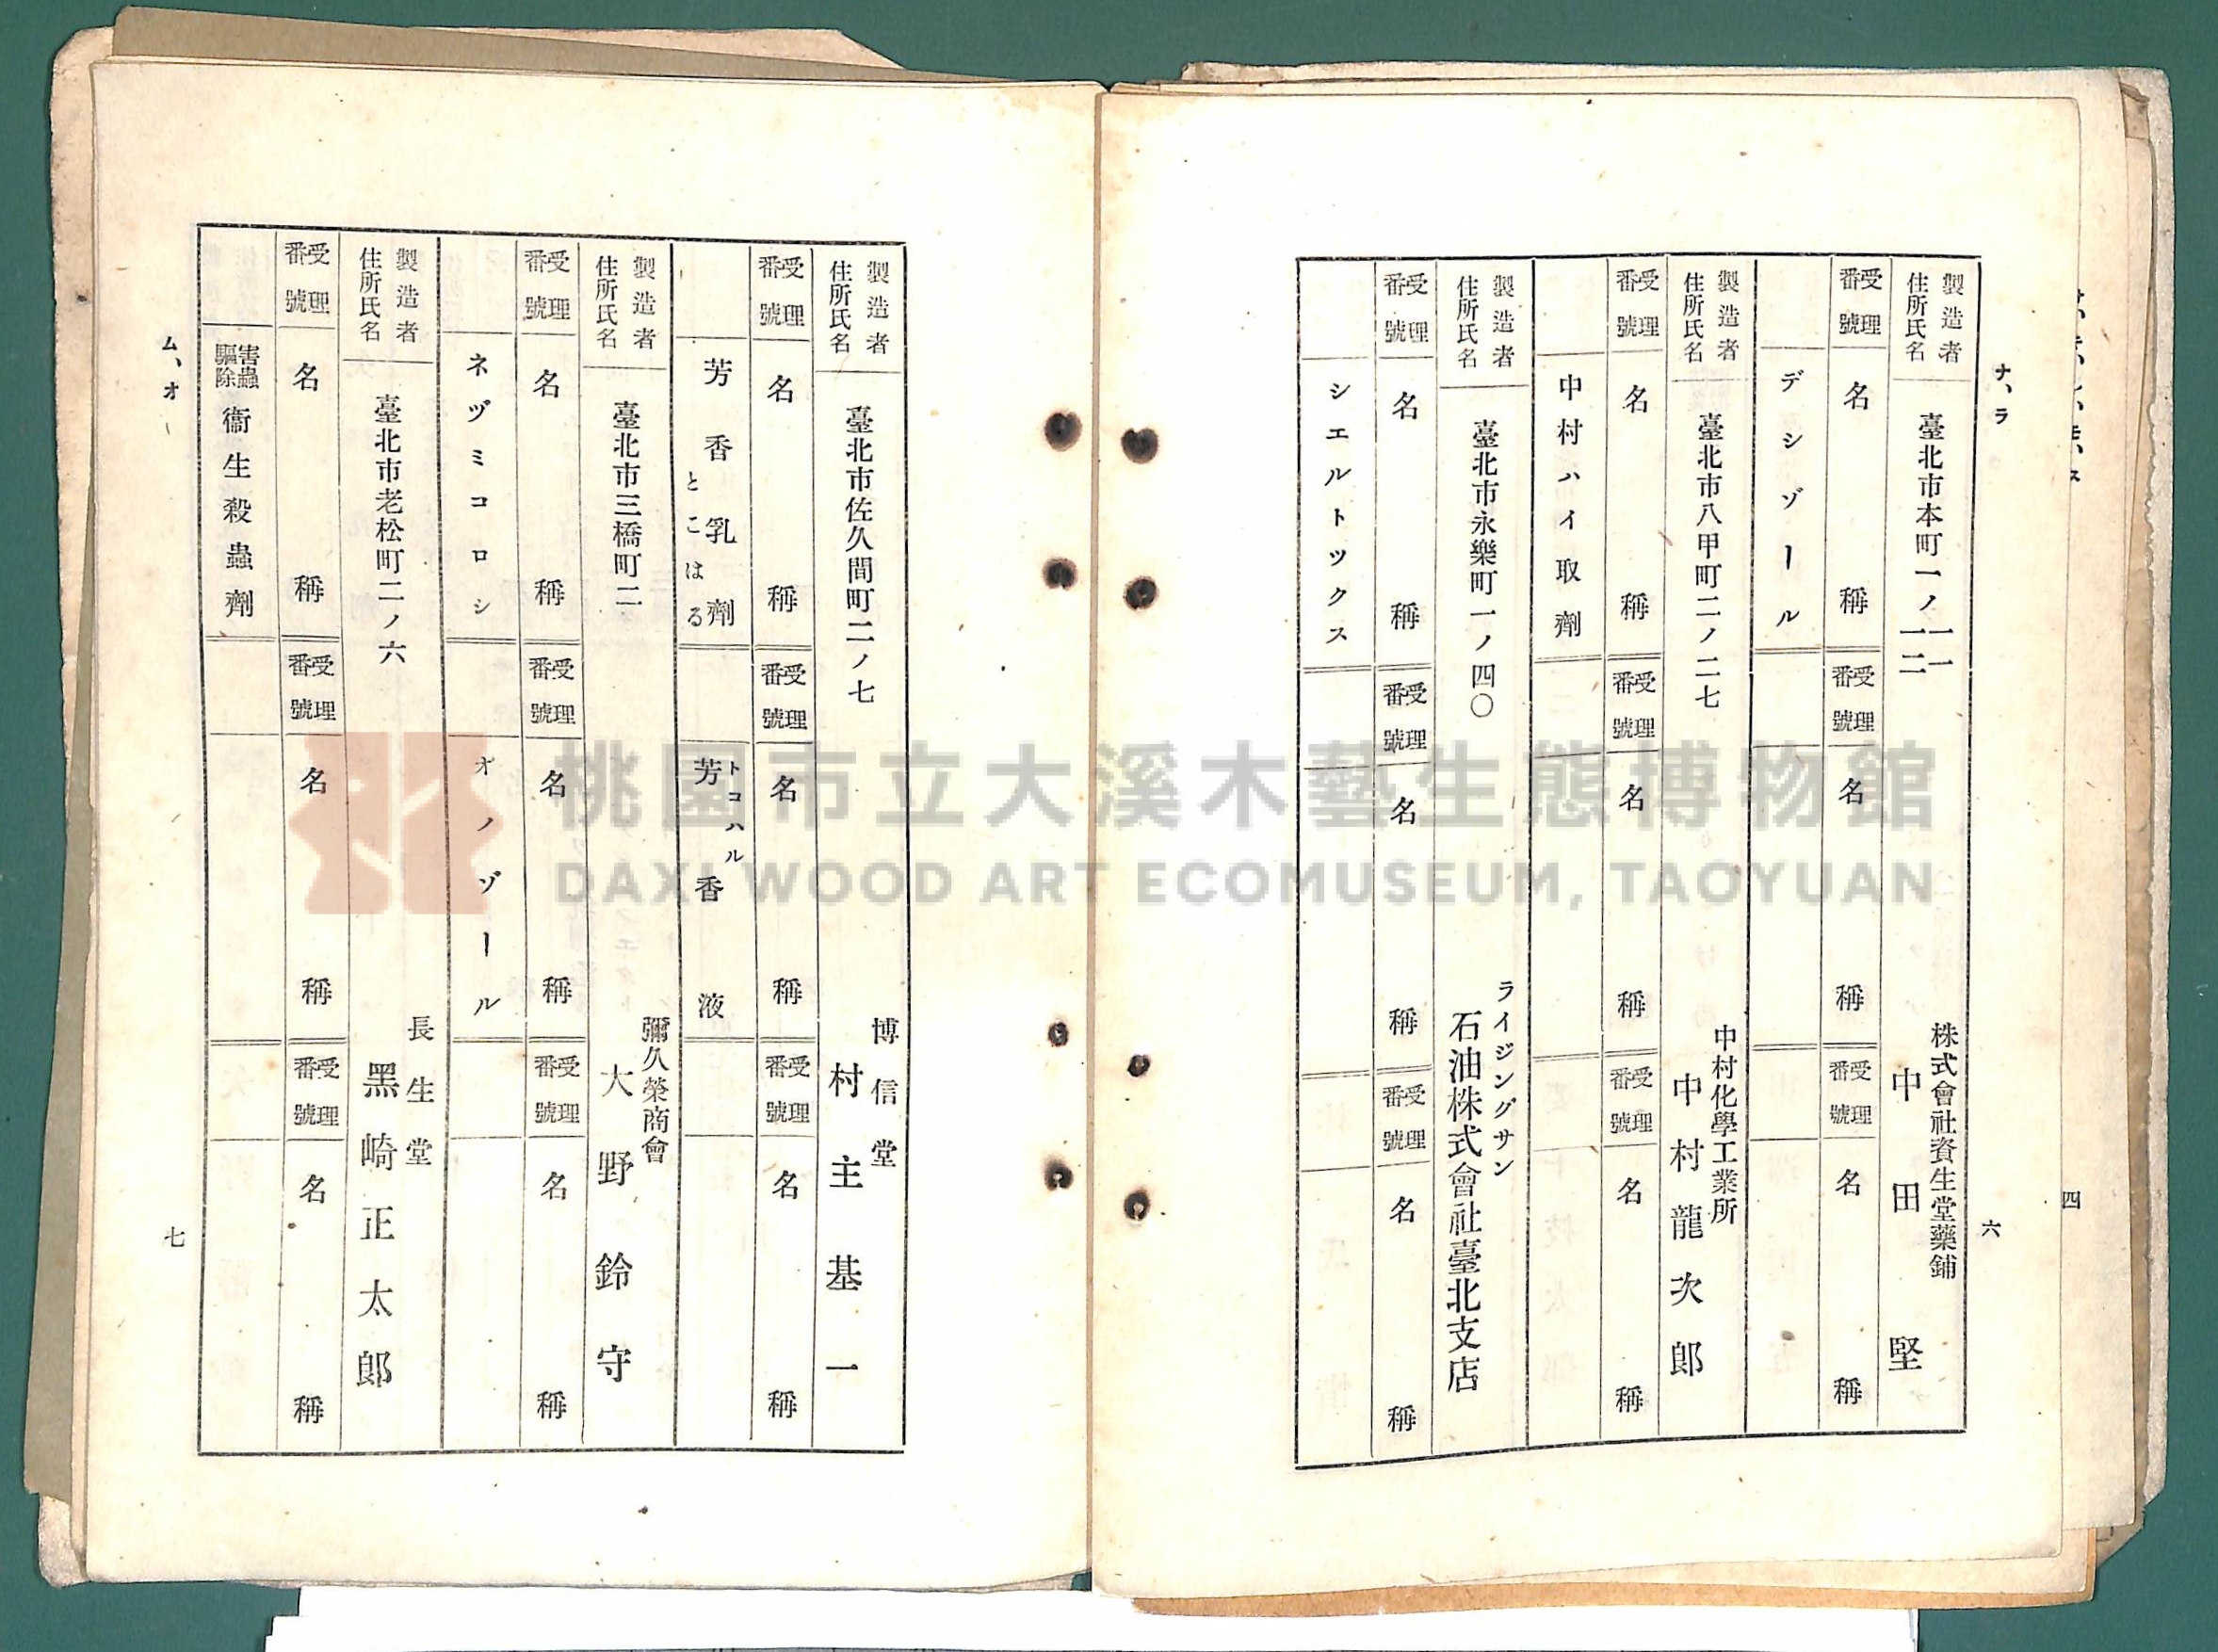 ナ、ラ
六
製造者
住所氏名
臺北市本町一ノ一一
一二
株式會社資生堂藥鋪
中田堅
受理番號
名稱
受理番號
名稱
受理番號
名稱
デシゾール
製造者
住所氏名
臺北市八甲町二ノ二七
中村化學工業所
中村龍次郎
受理番號
名稱
受理番號
名稱
受理番號
名稱
中村ハイ取劑
製造者
住所氏名
臺北市永樂町一ノ四〇
ライジングサン
石油株式會社臺北支店
受理番號
名稱
受理番號
名稱
受理番號
名稱
シエルトツクス
四
製造者
住所氏名
臺北市佐久間町二ノ七
博信堂
村主基一
受理番號
名稱
受理番號
名稱
受理番號
名稱
芳香乳劑
とこはる
トコハル
芳香液
製造者
住所氏名
臺北市三橋町二
彌久榮商會
大野鈴守
受理番號
名稱
受理番號
名稱
受理番號
名稱
ネヅミコロシ
オノゾール
製造者
住所氏名
臺北市老松町二ノ六
長生堂
黑崎正太郎
受理番號
名稱
受理番號
名稱
受理番號
名稱
害蟲驅除衞生殺蟲劑
ム、オ
七
桃園市立大溪木藝生態博物館
DAXI WOOD ART ECOMUSEUM, TAOYUAN